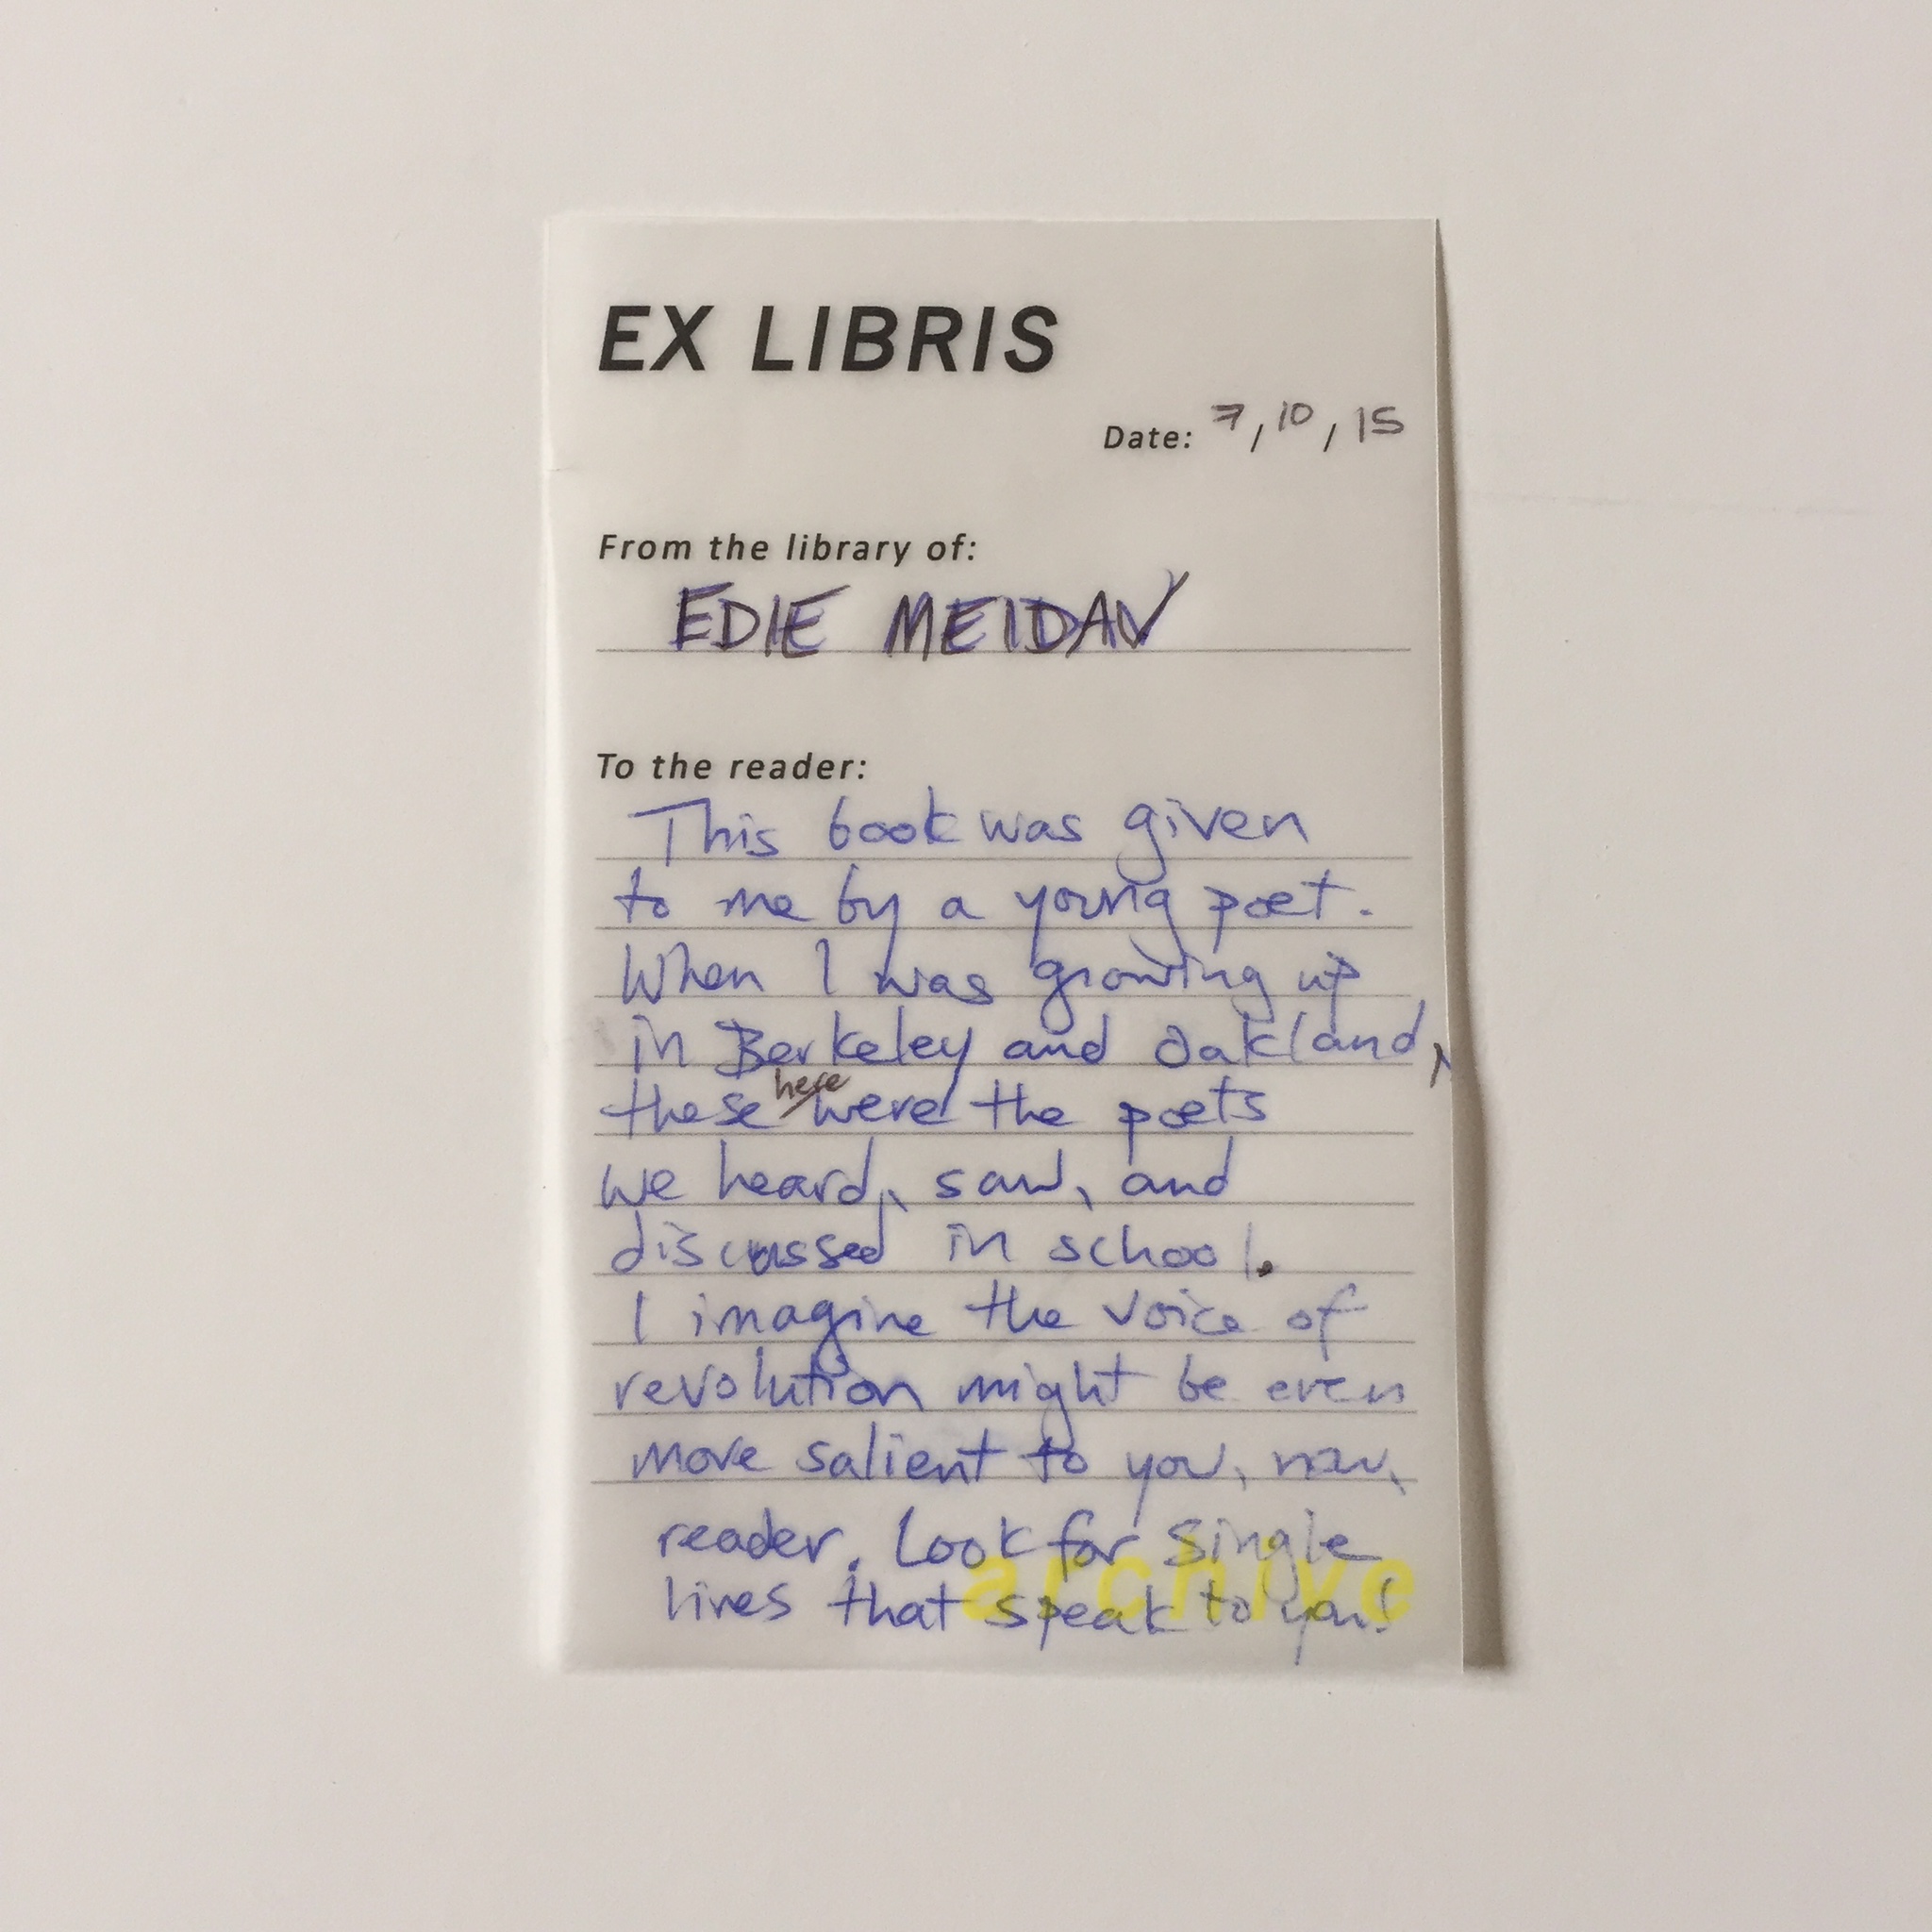 EX LIBRIS
Date: 7/10/15
From the library of:
EDIE MEIDAV
To the reader:
This book was given
to me by a young poet.
When I was growing up
in Berkeley and Oakland,
these here were the poets
we heard, saw, and
discussed in school.
I imagine the voice of
revolution might be even
more salient to you, now,
reader. Look for single
lines that speak to you!
archive